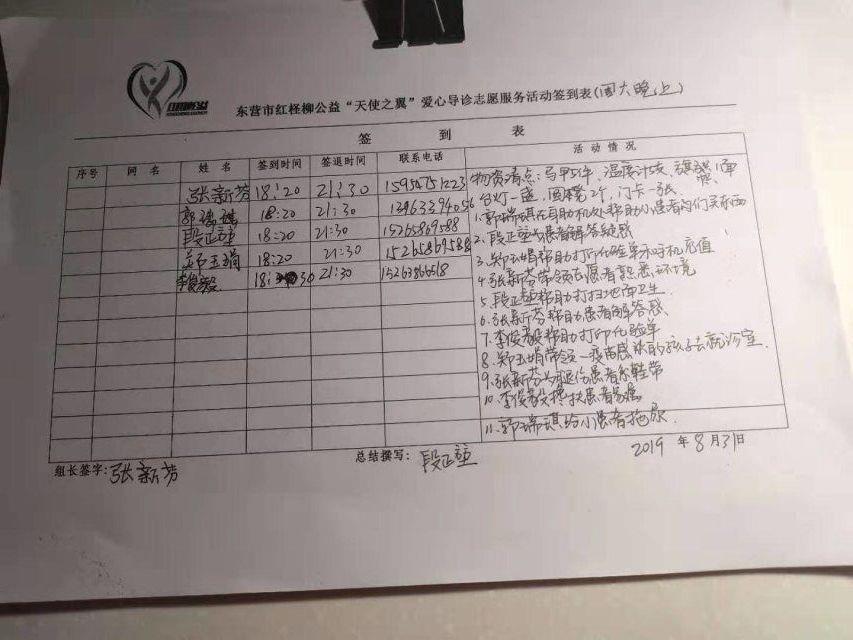 东营市红柽柳公益“天使之翼”爱心导诊志愿服务活动签到表(周六晚上)
签 到 表
序号 网名 姓名 签到时间 签退时间 联系电话 活动情况
张新芳 18:20 21:30 15954751223
郭瑞琪 18:20 21:30 13963394056
段正堃 18:20 21:30 15265869588
郑玉娟 18:20 21:30 15265869588
李俊毅 18:30 21:30
物资清点:马甲5件、温度计2支、旗帜1面
台灯一盏、圆凳2个、门卡一张、
1.郭瑞琪在自助机处帮助小患者们买东西
2.段正堃为患者解答疑惑
3.郑玉娟帮助打印化验单示呼机充值
4.张新芬带领志愿者熟悉环境
5.段正堃帮助打扫地面卫生
6.张新芬帮助患者解答惑、
7.李俊毅帮助打印化验单
8.郑玉娟带领一疫苗感染的孩子去就诊室.
9.张新芬为腿伤患者系鞋带
10.李俊毅搀扶患者
11.郭瑞琪给小患者拖尿.
2019 年 8月31日
组长签字:张新芳 总结撰写:段正堃